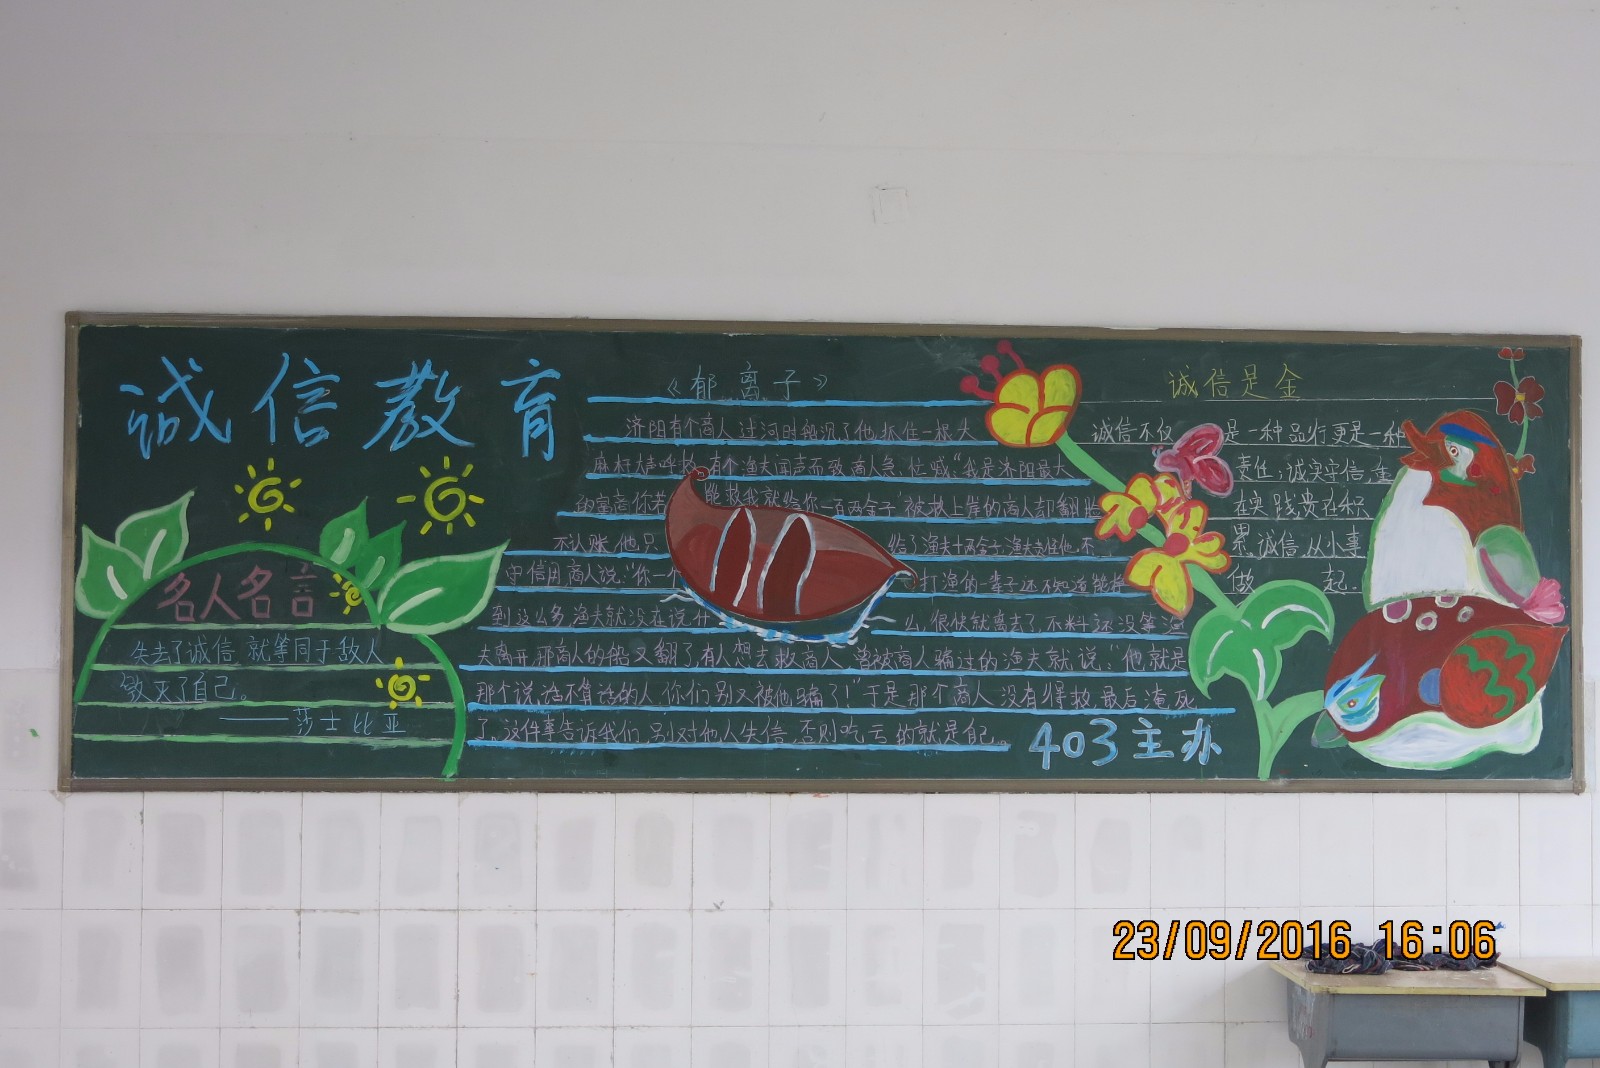 诚信教育
名人名言
失去了诚信,就等同于敌人
毁灭了自己。
——莎士比亚
《郁离子》
济阳有个商人过河时船沉了他抓住一根大
麻杆大声呼救,有个渔夫闻声而致商人急忙喊“我是济阳最大
的富商你若能救我就给你一百两金子”被救上岸的商人却翻脸
不认账,他只给了渔夫十两金子,渔夫责怪他不
守信用商人说:“你一个打渔的一辈子还不知道能挣
到这么多,渔夫就没在说什么,很快就离去了,不料还没等渔
夫离开,那商人的船又翻了,有人想去救商人,曾被商人骗过的渔夫就说:“他就是
那个说话不算话的人,你们别又被他骗了!”于是那个商人没有得救,最后淹死
了,这件事告诉我们,别对他人失信,否则吃亏的就是自己。
403主办
诚信是金
诚信不仅是一种品行更是一种
责任;诚实守信,重
在实践,贵在积
累,诚信,从小事
做起.
23/09/2016 16:06